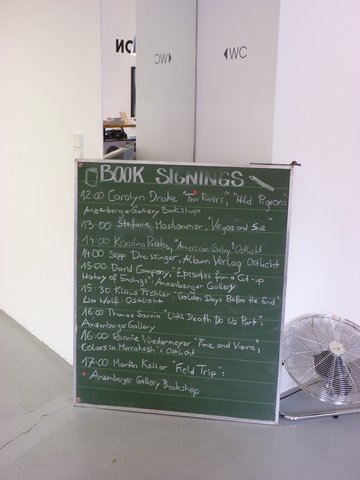 WC
WC
BOOK SIGNINGS
12:00 Carolyn Drake "Two Rivers", "Wild Pigeon"
Anzenberger Gallery Bookshop
13:00 Stefanie Moshammer, "Vegas and She"
14:00 Karolina "American Cowboy" OstLicht
14:00 Sepp Dreissinger, Album Verlag OstLicht
15:00 David Campany, "Episodes from a Cut-up
History of Endings": Anzenberger Gallery
15:30 Klaus Pichler "Golden Days Before the End"
Lia Wolf: OstLicht
16:00 Thomas Sauvin "Until Death Do Us Part":
Anzenberger Gallery
16:00 Ronnie Niedermeyer "Time and Vienna";
Colors in Marrakesh": OstLicht
17:00 Martin Kollar "Field Trip":
Anzenberger Gallery Bookshop